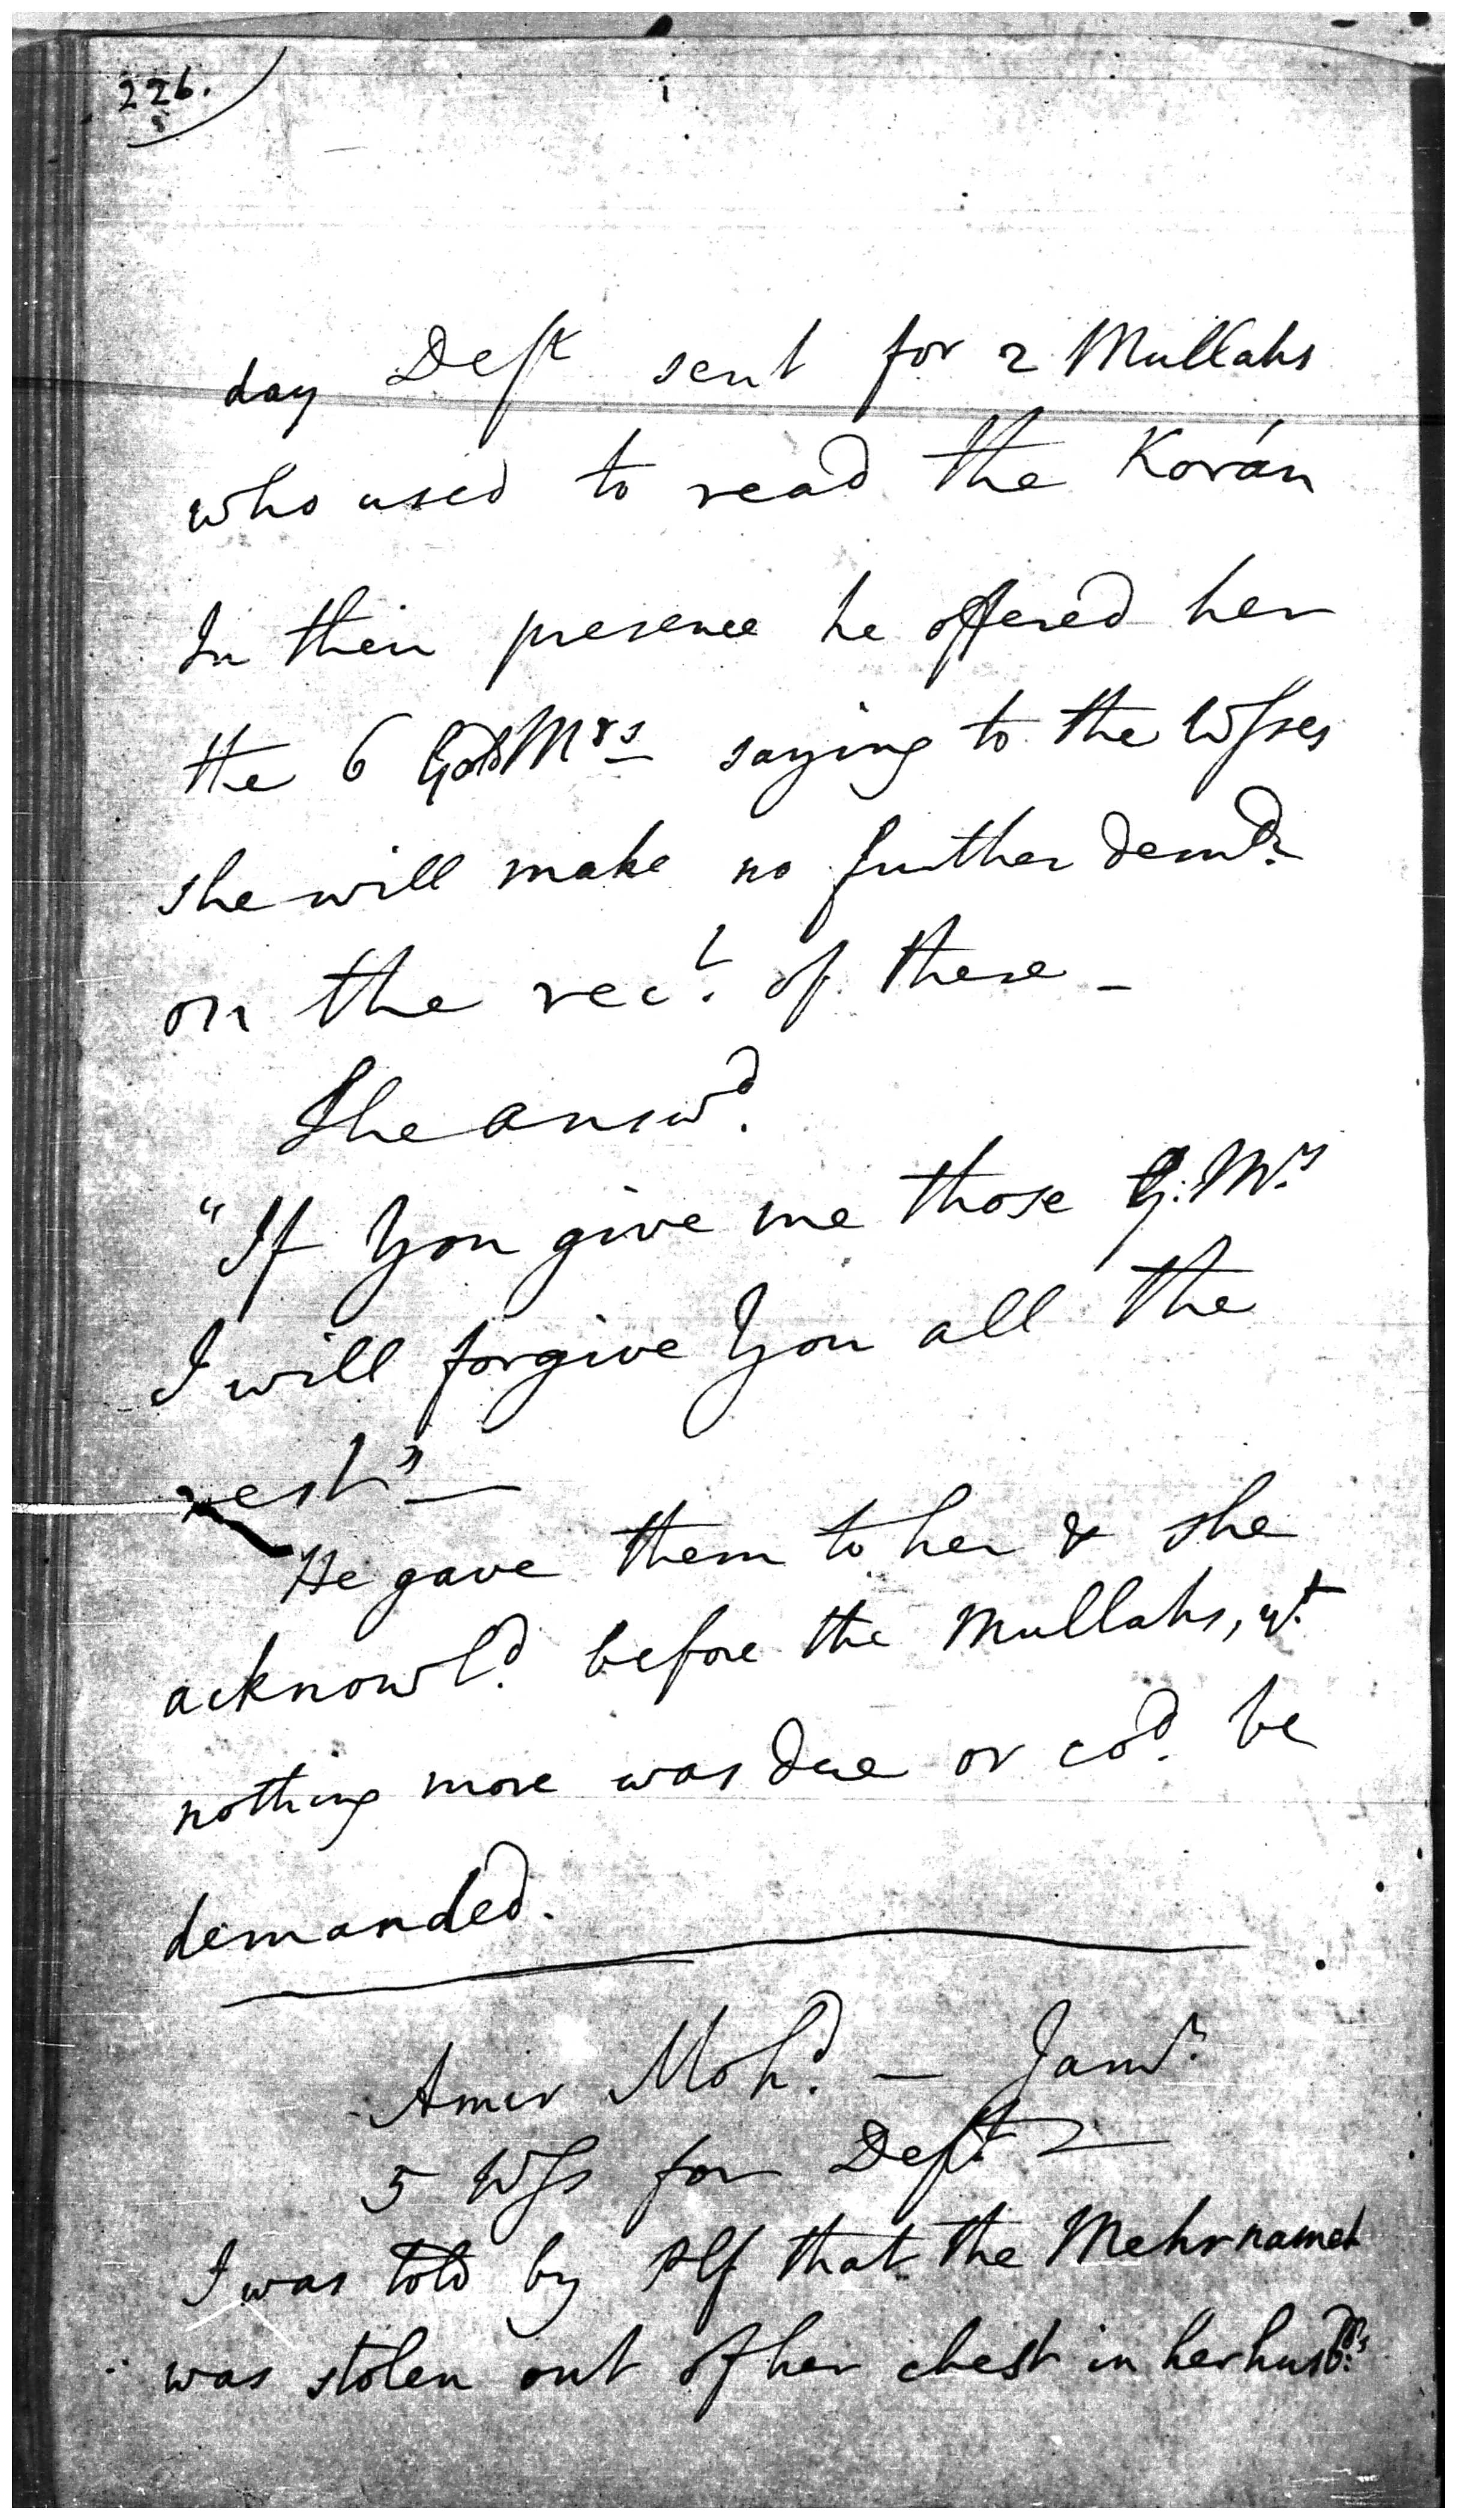 226.
day Deft sent for 2 Mullahs
who used to read the Korán
In their presence he offered her
the 6 Gold Mrs saying to the Wsses
she will make no further demd.
on the rect. of these –
She answd.
"If You give me those G. Mrs
I will forgive You all the
rest" —
He gave them to her & she
acknowld. before the Mullahs, yt.
nothing more was due or cod. be
demanded.
Amir Mohd. –
5 Wss for Deft. 2
I was told by Plf that the Mehrnameh
was stolen out of her chest in her husbds.